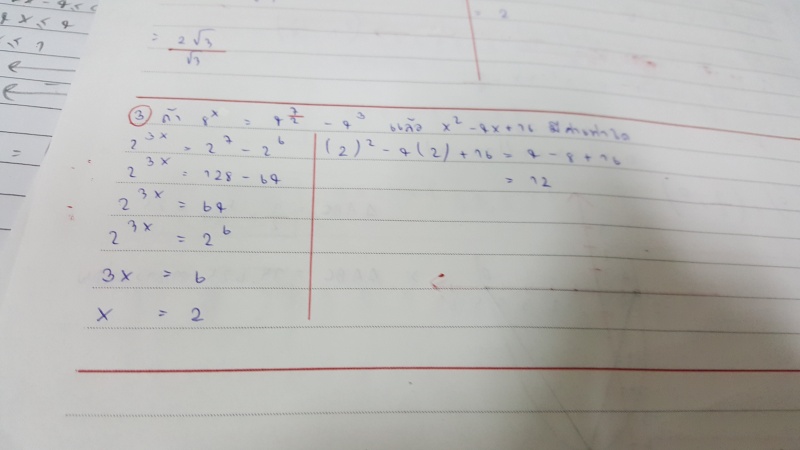 = 2
= 2√3
√3
③ ถ้า 8^x = 4^(7/2) - 4^3 แล้ว x² - 4x + 16 มีค่าเท่าใด
2^(3x) = 2^7 - 2^6
2^(3x) = 128 - 64
2^(3x) = 64
2^(3x) = 2^6
3x = 6
x = 2
(2)² - 4(2) + 16 = 4 - 8 + 16
= 12